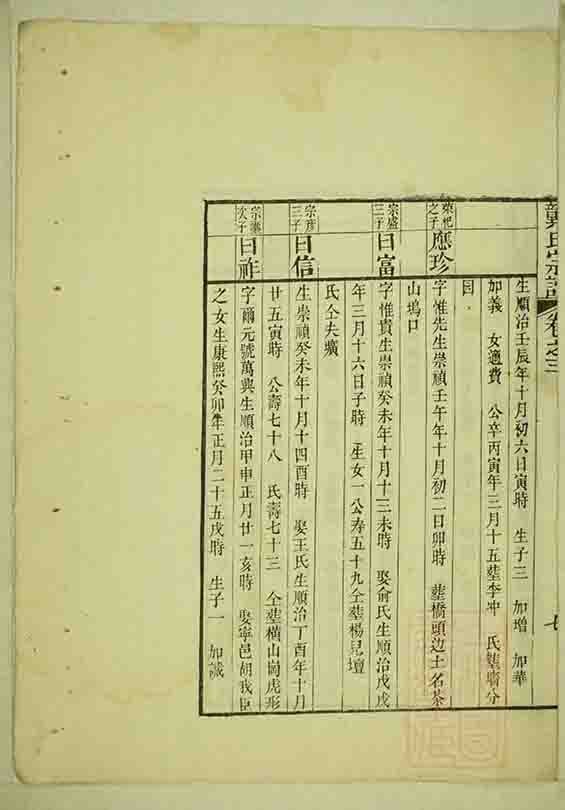 氏宗譜 卷之三
七
生順治壬辰年十月初六日寅時 生子三 加增 加華
加義 女適費 公辛丙寅年三月十五塟李冲 氏塟分
榮杞之子
應珍
字惟先生崇禎壬午年十月初二日卯時 塟橋頭边土名茶
山塢口
宗盛三子
曰富
字惟貴生崇禎癸未年十月十三未時 娶俞氏生順治戊戌
年三月十六日子時 生女一公寿五十九仝塟楊兒壇
氏仝夫壙
宗彦三子
曰信
生崇禎癸未年十月十四酉時 娶王氏生順治丁酉年十月
廿五寅時 公壽七十八 氏壽七十三 仝塟橫山崗虎形
次子
曰祥
字爾元號萬興生順治甲申正月廿一亥時 娶寧邑胡我臣
之女生康熙癸卯年正月二十五戌時 生子一 加誠